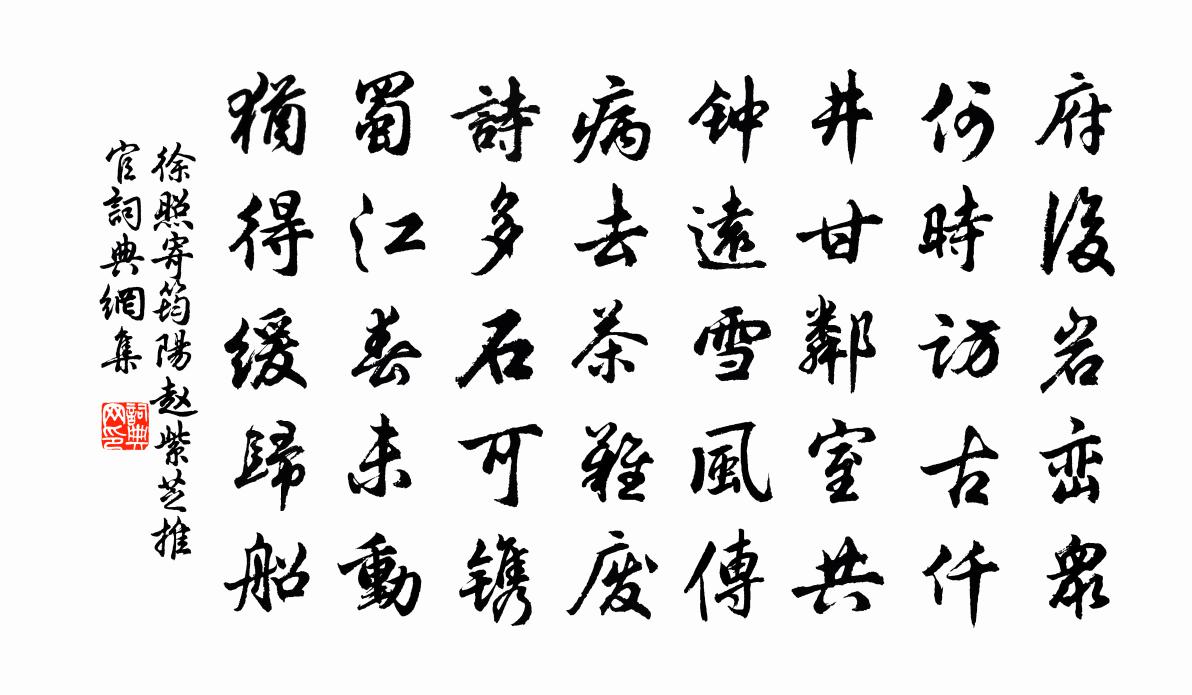 府後岩巒眾
何時訪古仟
井甘鄰室共
钟遠雪風傳
病去茶難废
詩多石可镌
蜀江春未動
猶得缓歸船
徐照寄筠陽赵紫芝推
官詞典網集
詞典网印